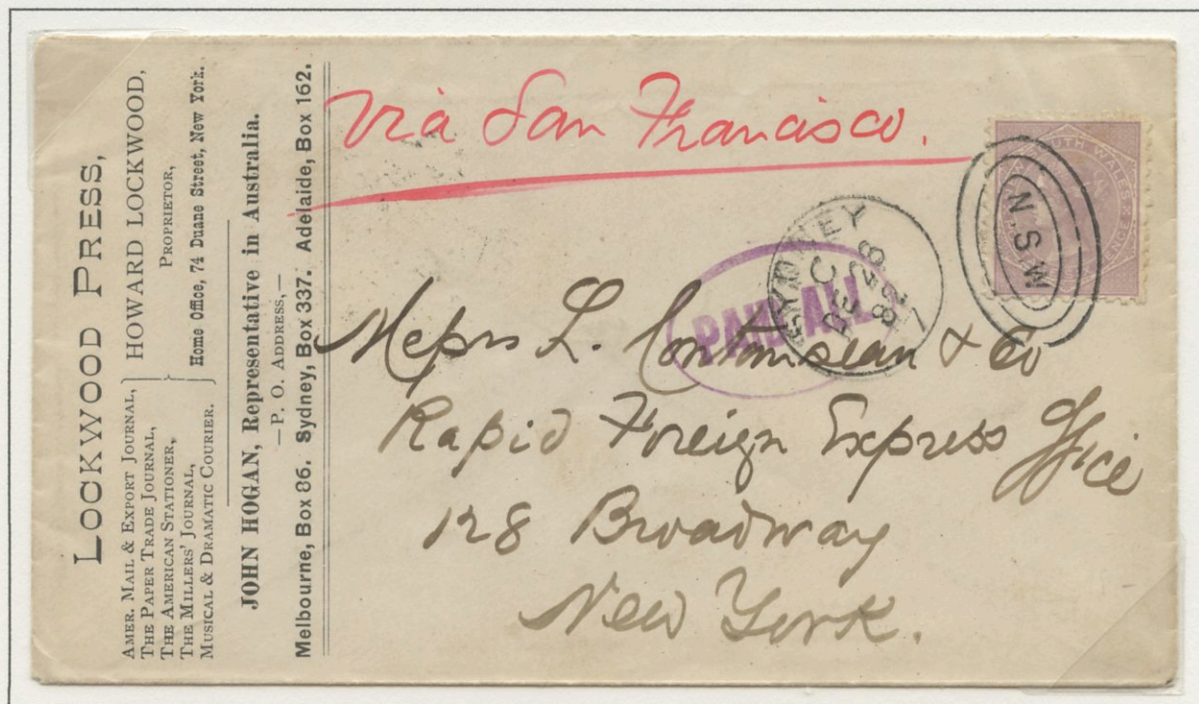 LOCKWOOD PRESS,
AMER. MAIL & EXPORT JOURNAL,
THE PAPER TRADE JOURNAL,
THE AMERICAN STATIONER,
THE MILLERS' JOURNAL,
MUSICAL & DRAMATIC COURIER.
HOWARD LOCKWOOD,
PROPRIETOR,
Home Office, 74 Duane Street, New York.
JOHN HOGAN, Representative in Australia.
—P. O. ADDRESS,—
Melbourne, Box 86. Sydney, Box 337. Adelaide, Box 162.
Via San Francisco.
SOUTH WALES
PENCE
N.S.W
SYDNEY
C
DE 28
82
7
PAID ALL
Messrs L. & Co
Rapid Foreign Express Office
128 Broadway
New York.